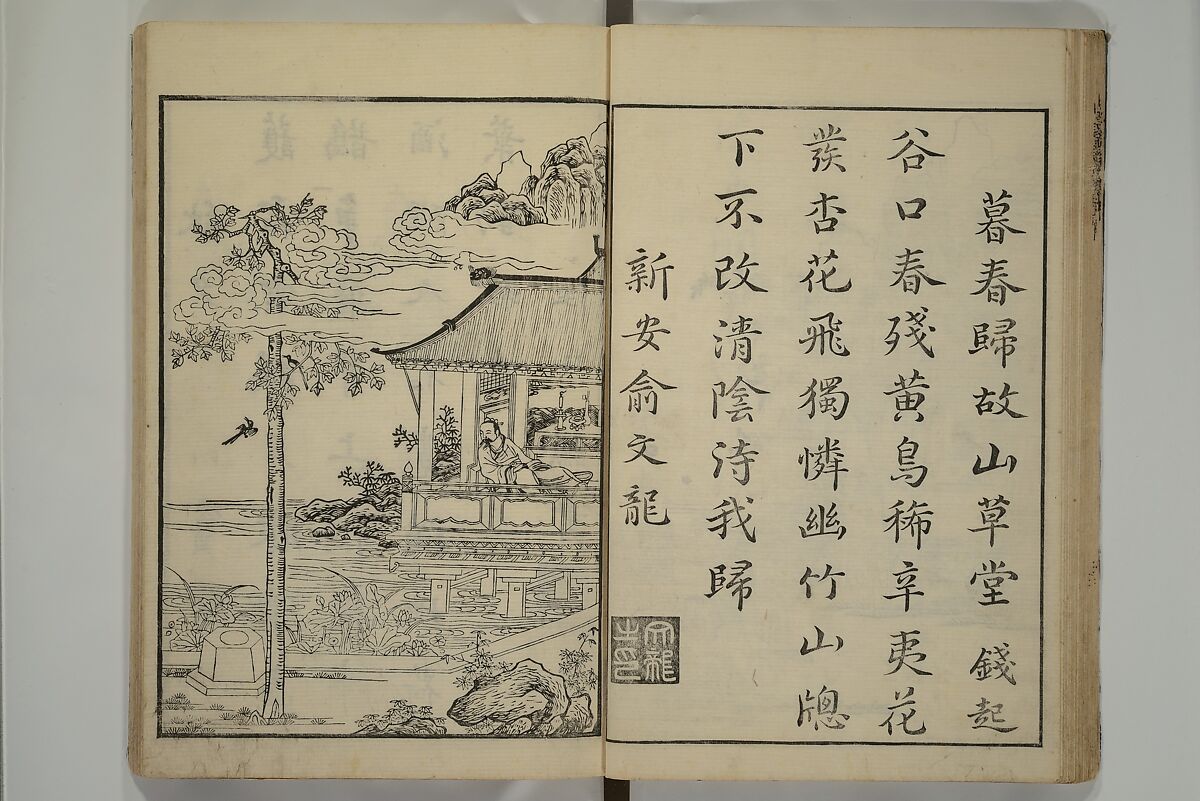 暮春歸故山草堂　錢起
谷口春殘黄鳥稀辛夷花
發杏花飛獨憐幽竹山牕
下不改清陰待我歸
新安俞文龍
文龍之印